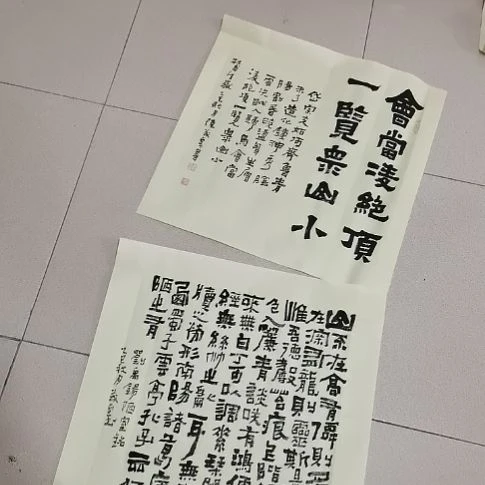 會當凌絕頂
一覽衆山小
岱宗夫如何齊魯青
未了造化鍾神秀陰
陽割昏曉盪胸生層
雲決眥入歸鳥會當
凌絕頂一覽衆山小
山不在高有
在深有龍則靈斯
惟吾德馨苔痕上階
色入簾青談笑有鴻儒
來無白丁可以調素琴
經無絲竹之亂耳無
牘之勞形南陽諸葛廬
西蜀子雲亭孔子云何
陋之有
劉禹錫陋室銘